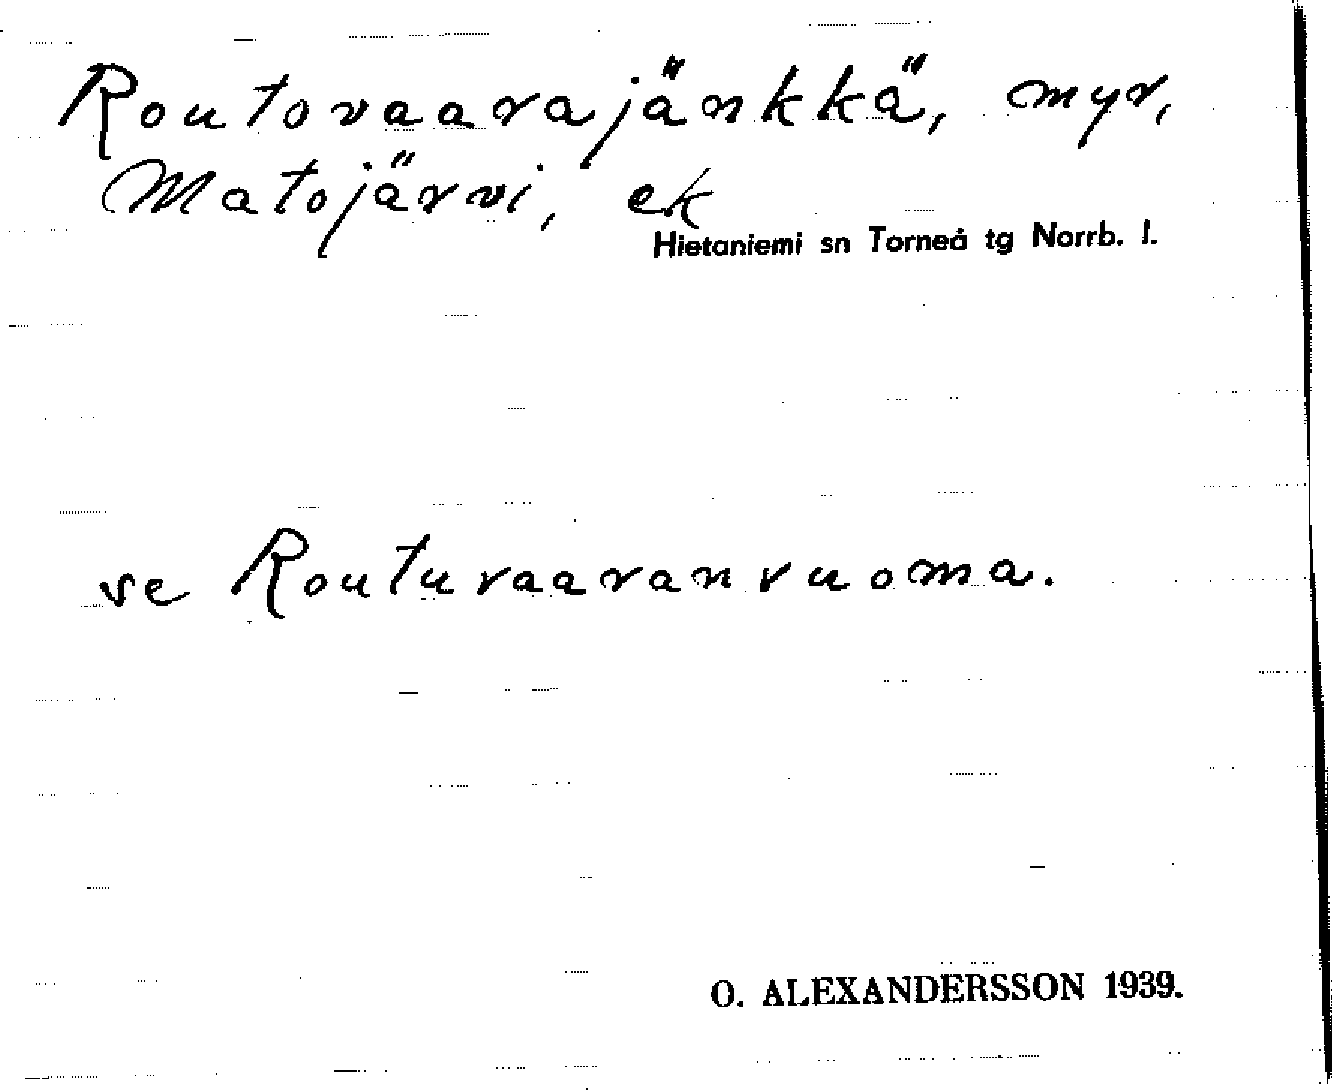 Routovaarajänkkä, myr,
Matojärvi, ek
Hietaniemi sn Torneå tg Norrb. l.
se Routuvaaranvuoma.
O. ALEXANDERSSON 1939.